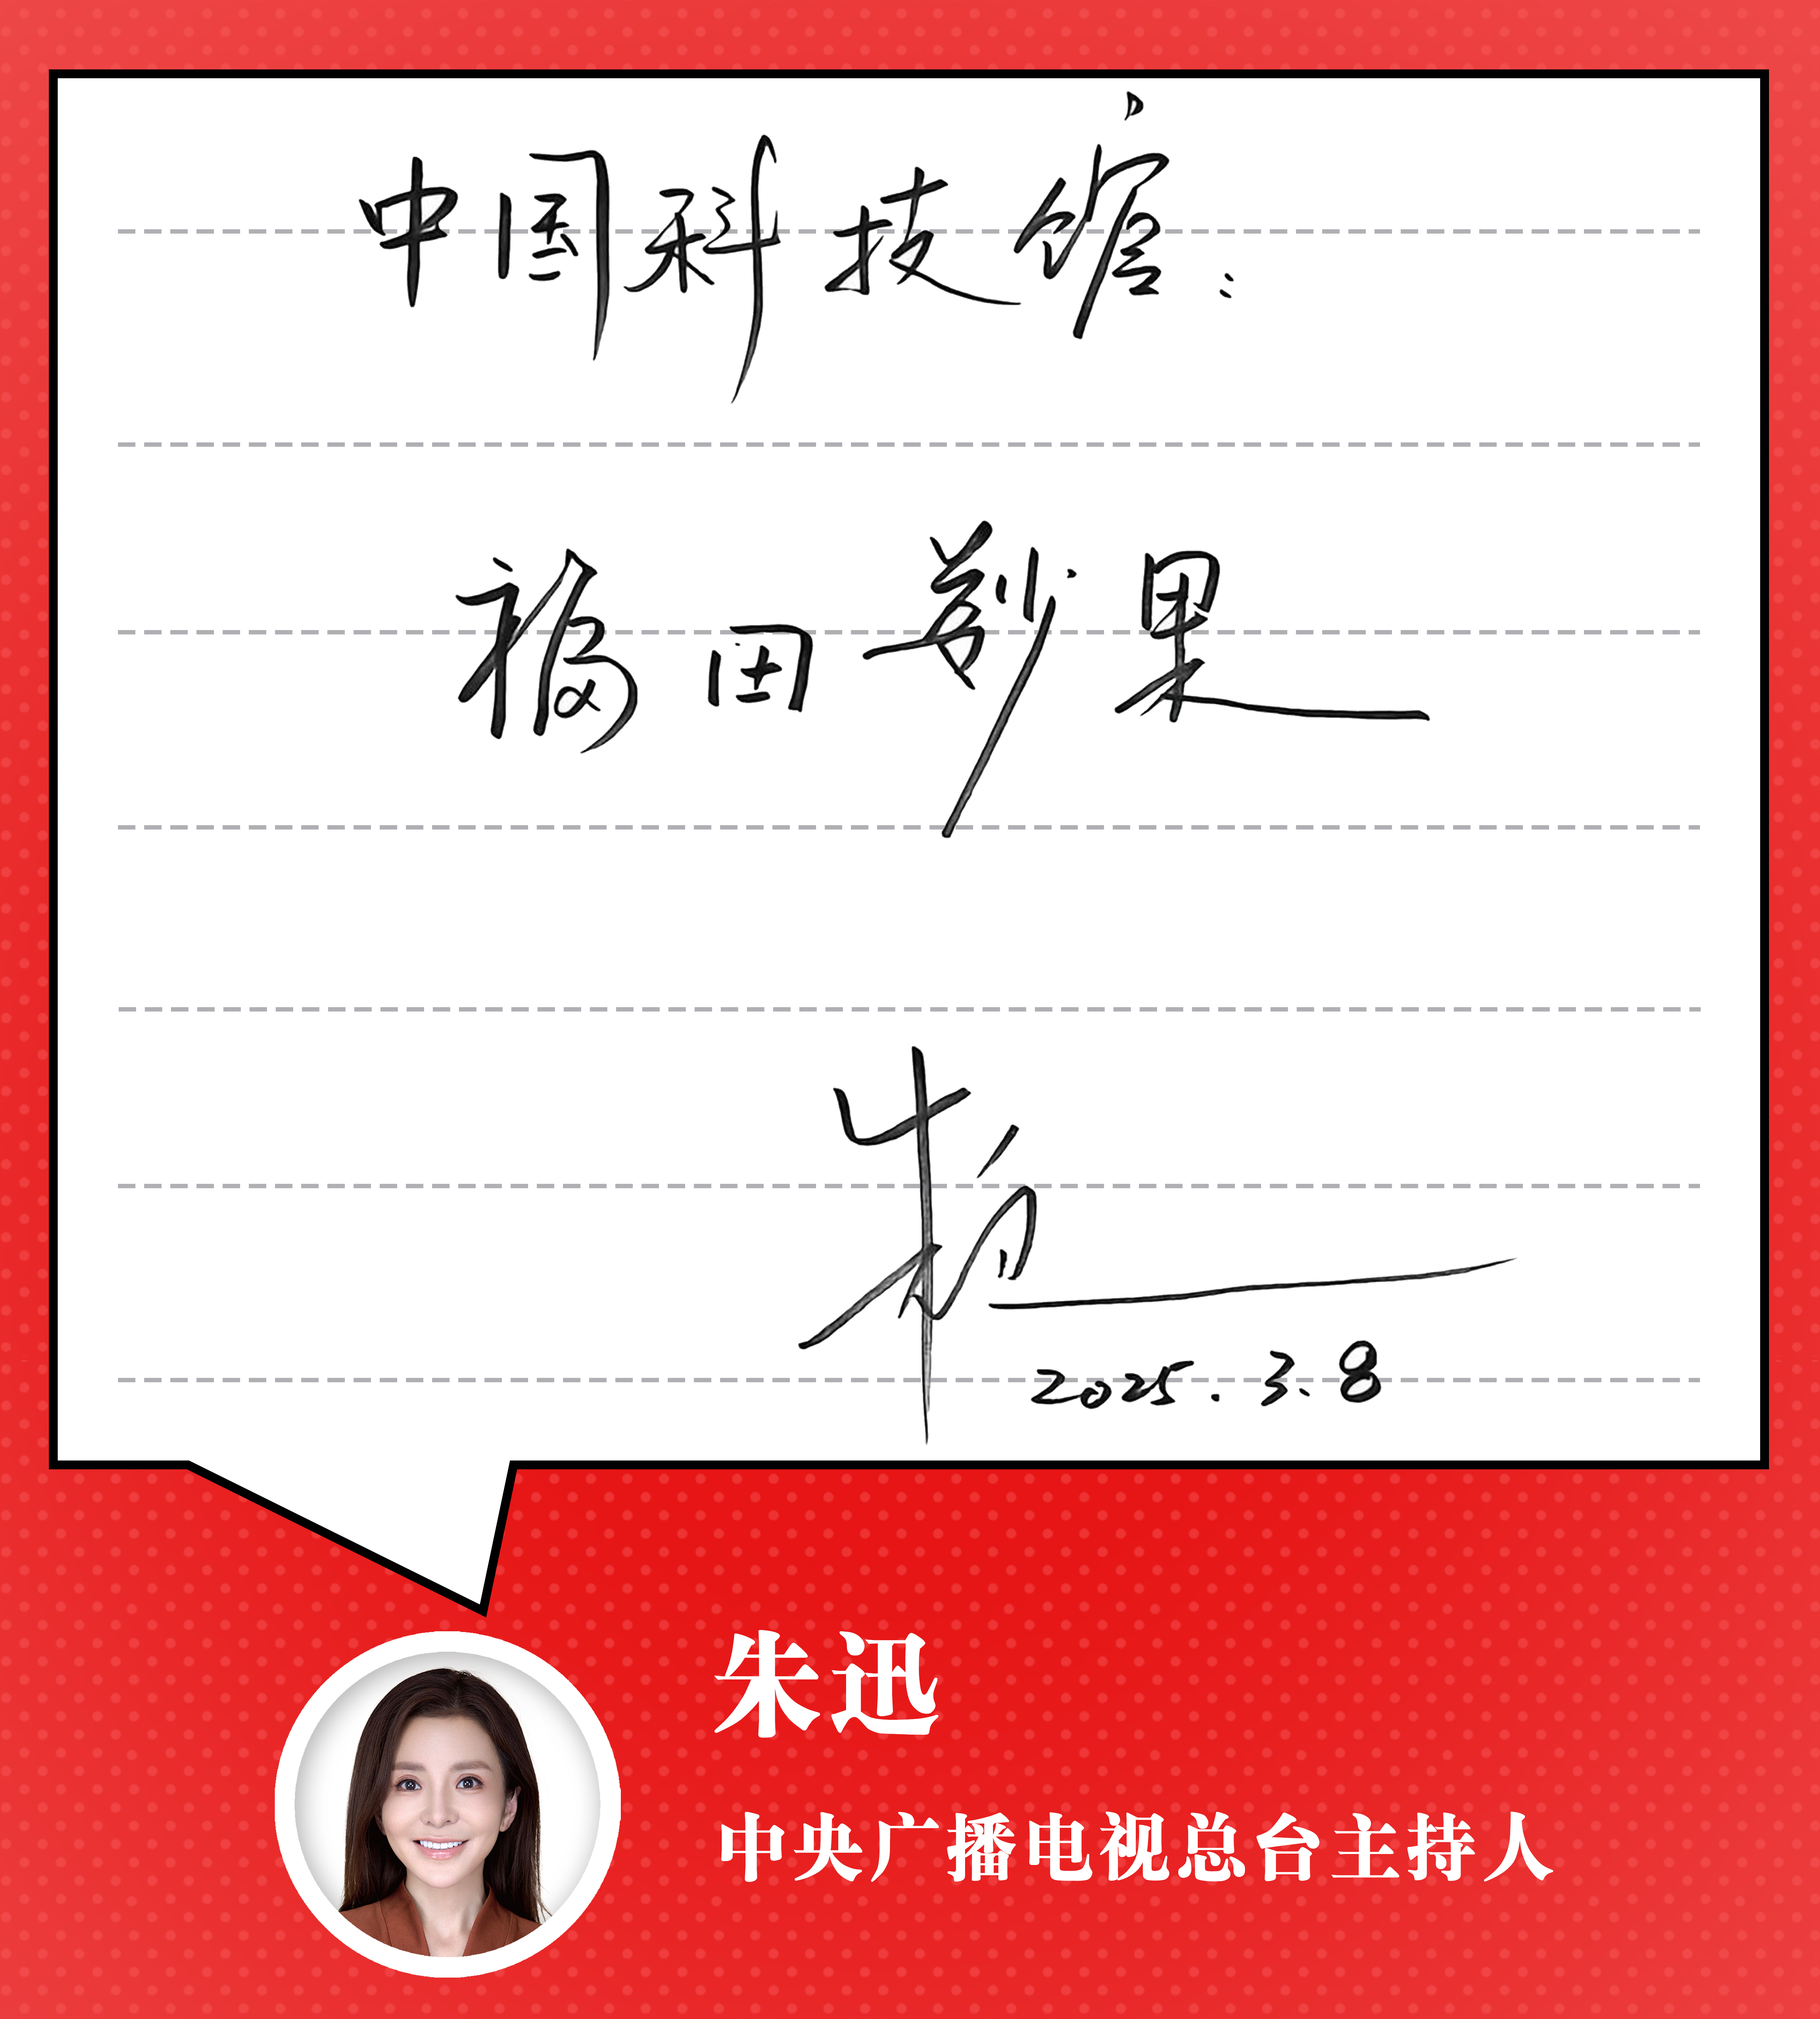 中国科技馆：
福田妙果
朱迅
2025.3.8
朱迅
中央广播电视总台主持人